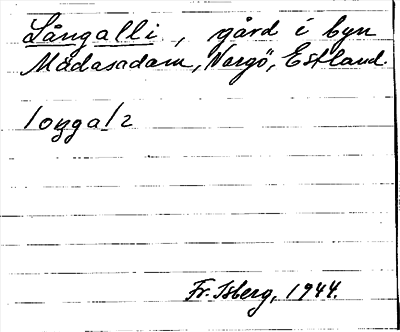 Långalli, gård i byn
Madasadam, Nargö, Estland.
Fr. Isberg, 1944.